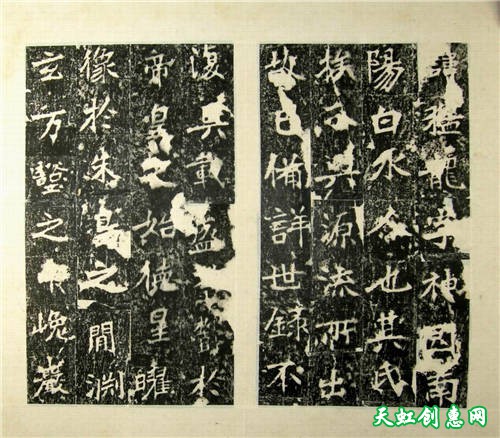 諱猛龍字神囧南
陽白水人也其氏
族分興源流所出
故已備詳世錄不
復具載盛蓄於
帝皇之始德星曜
像於朱鳥之間淵
玄万壑之中巘巖
天虹创惠网